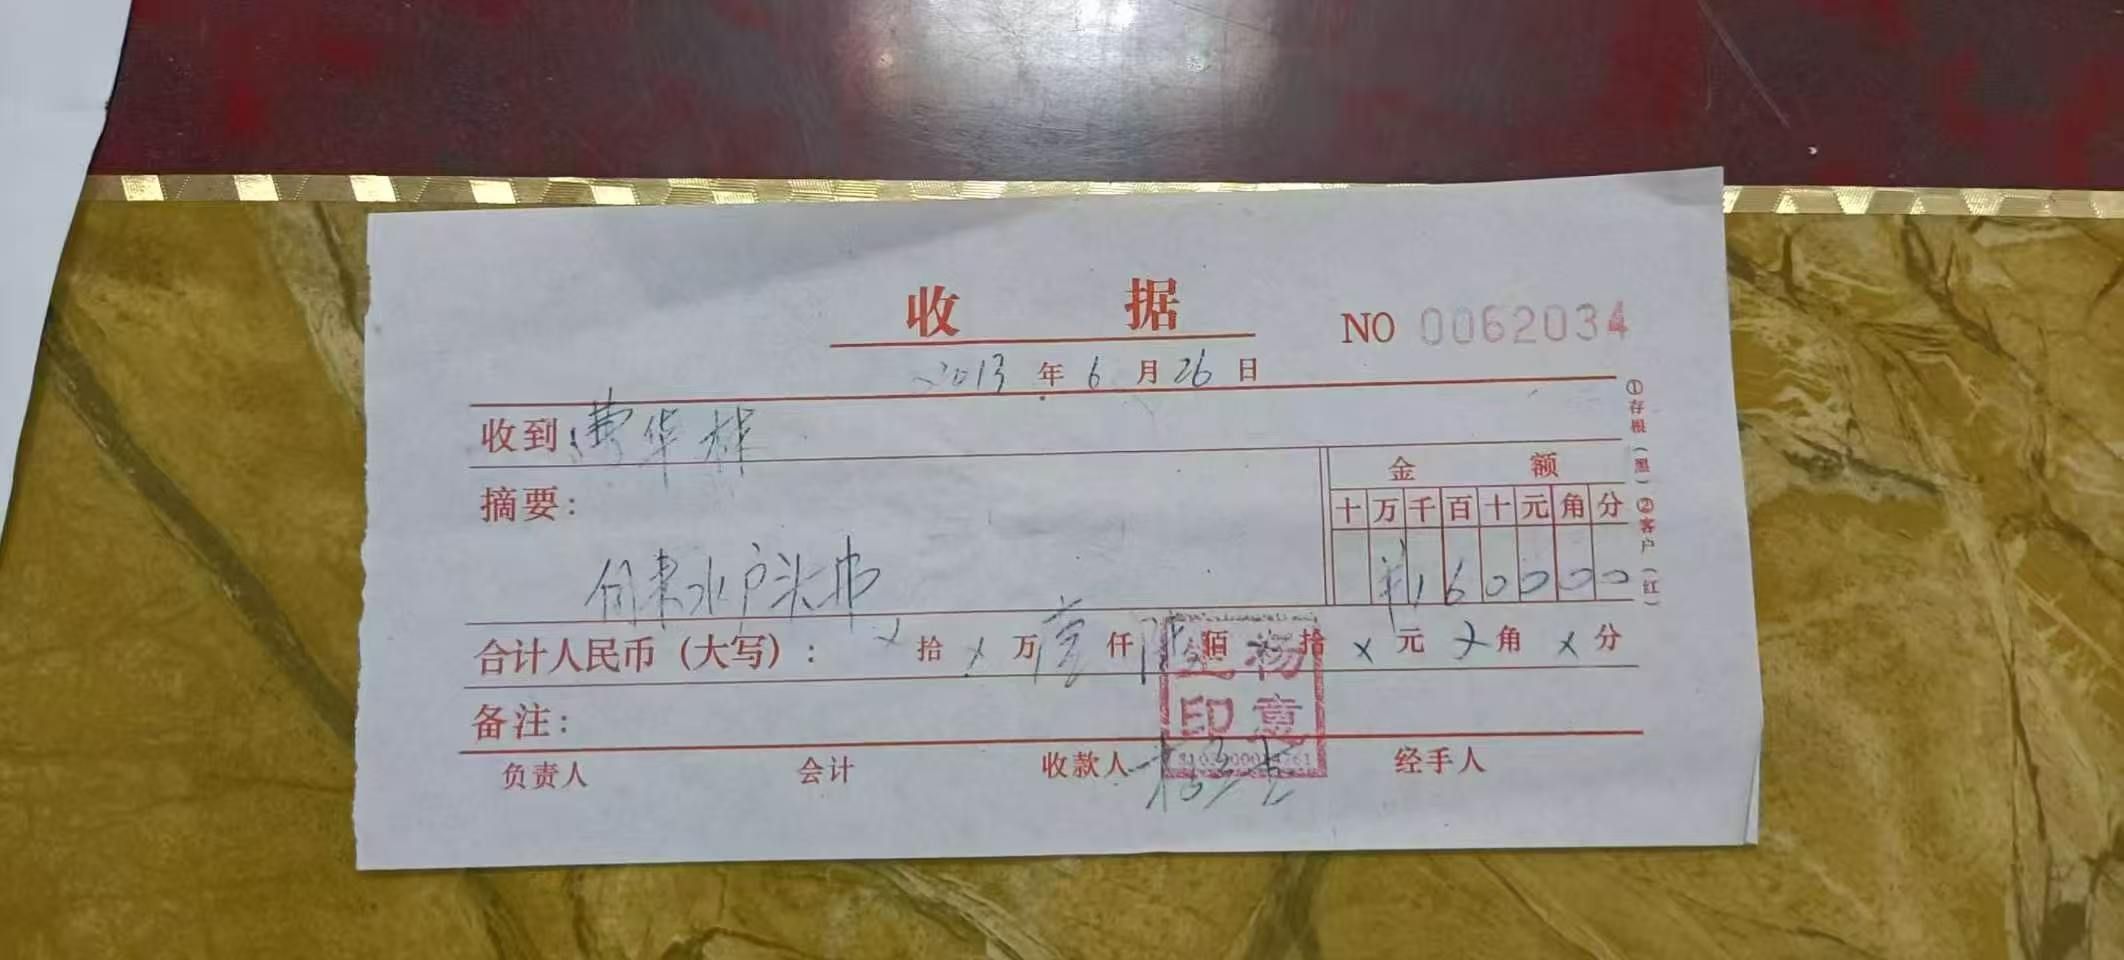 收 据
NO 0062034
2013 年 6 月 26 日
收到 费华祥
金 额
摘要:
十 万 千 百 十 元 角 分
自来水户头币
¥ 1 6 0 0 0 0
合计人民币(大写): × 拾 × 万 壹 仟 陆 佰 × 拾 × 元 × 角 × 分
备注:
印 章
负责人 会计 收款人 经手人
①存根(黑) ②客户(红)